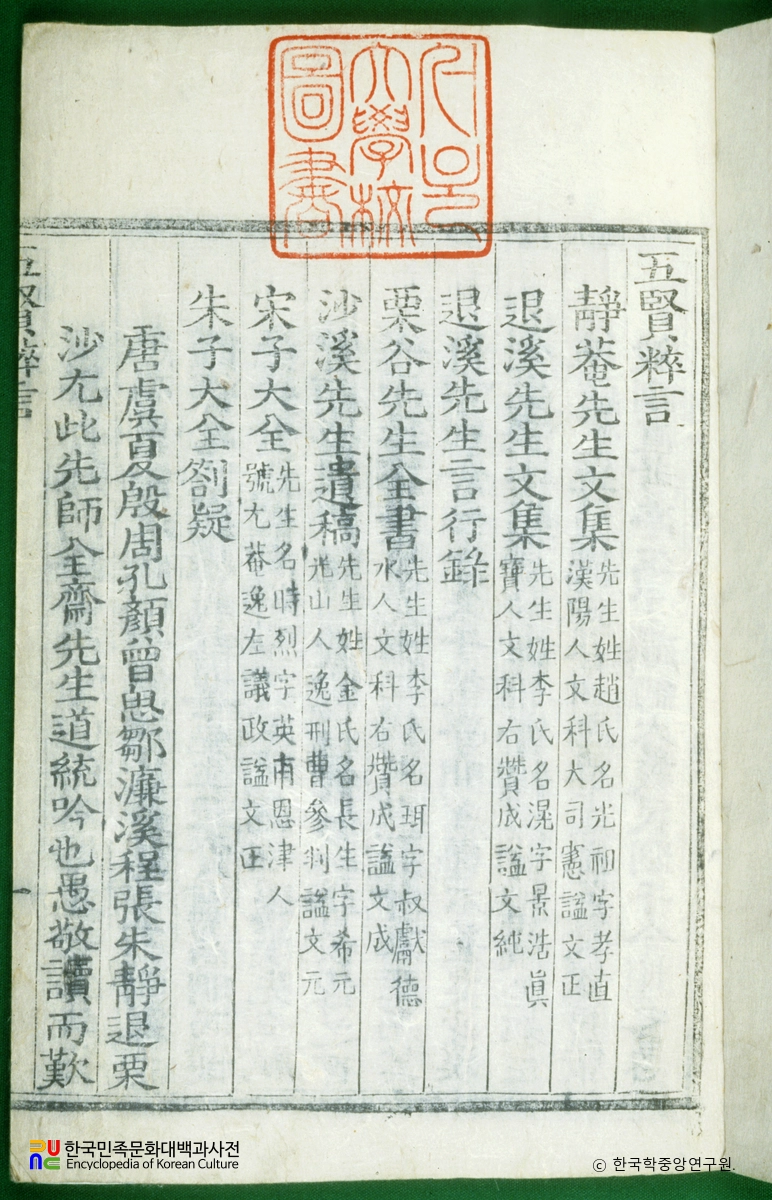 大學校
圖書
五賢粹言
靜菴先生文集 先生姓趙氏名光祖字孝直
漢陽人文科大司憲謚文正
退溪先生文集 先生姓李氏名滉字景浩眞
寶人文科右贊成謚文純
退溪先生言行錄
栗谷先生全書 先生姓李氏名珥字叔獻德
水人文科右贊成謚文成
沙溪先生遺稿 先生姓金氏名長生字希元
光山人逸刑曹參判謚文元
宋子大全 先生名時烈字英甫恩津人
號尤菴逸左議政謚文正
朱子大全劄疑
唐虞夏殷周孔顏曾思鄒濂溪程張朱靜退栗
沙尤此先師全齋先生道統吟也愚敬讀而歎
五賢粹言
一
한국민족문화대백과사전
Encyclopedia of Korean Culture
© 한국학중앙연구원.